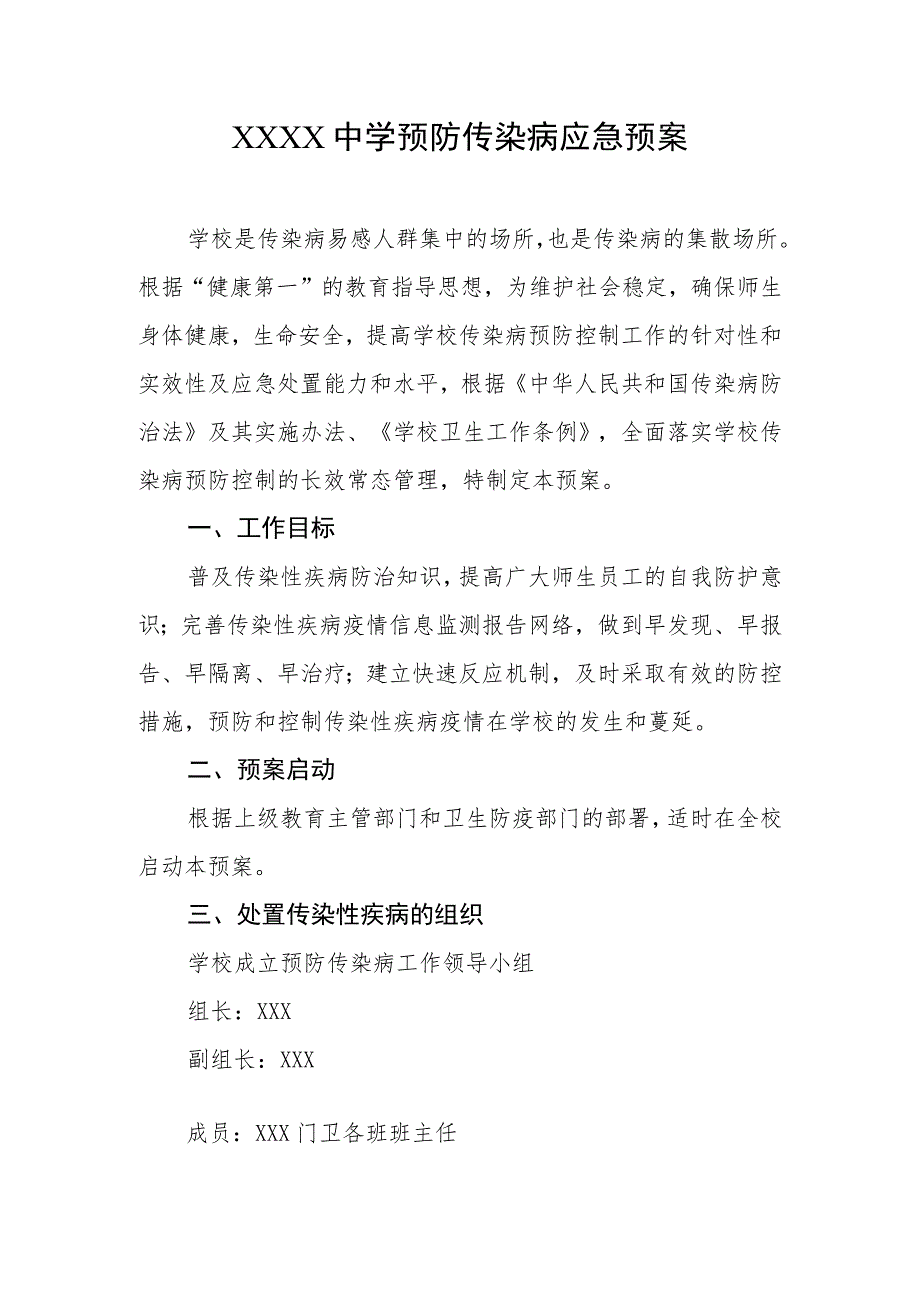 XXXX 中学预防传染病应急预案
学校是传染病易感人群集中的场所，也是传染病的集散场所。
根据“健康第一”的教育指导思想，为维护社会稳定，确保师生
身体健康，生命安全，提高学校传染病预防控制工作的针对性和
实效性及应急处置能力和水平，根据《中华人民共和国传染病防
治法》及其实施办法、《学校卫生工作条例》，全面落实学校传
染病预防控制的长效常态管理，特制定本预案。
一、工作目标
普及传染性疾病防治知识，提高广大师生员工的自我防护意
识；完善传染性疾病疫情信息监测报告网络，做到早发现、早报
告、早隔离、早治疗；建立快速反应机制，及时采取有效的防控
措施，预防和控制传染性疾病疫情在学校的发生和蔓延。
二、预案启动
根据上级教育主管部门和卫生防疫部门的部署，适时在全校
启动本预案。
三、处置传染性疾病的组织
学校成立预防传染病工作领导小组
组长：XXX
副组长：XXX
成员：XXX 门卫各班班主任